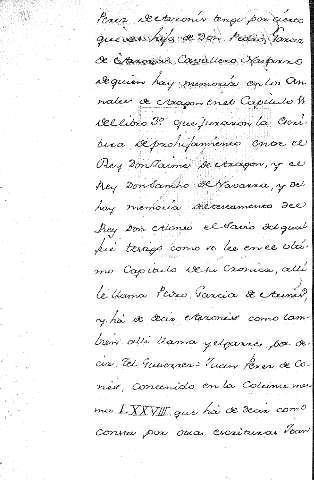 Perez de Azronis tengo por cierto
que es hijo de Don Pedro Garces
de Cavallero Navarro
de quien hay memoria en los An-
nales de Aragon en el Capitulo
del libro 3º que juraron la Escri-
tura de prohijamiento entre el
Rey Don Jaime de Aragon, y el
Rey Don Sancho de Navarra, y de
hay memoria del testamento del
Rey Don Alonso el Savio del qual
fué testigo como se lee en el ulti-
mo Capitulo de su Cronica, alli
le llama Pedro Garcia de
y há de decir como tam-
bien alli llama y por de-
cir, Tel Gutierrez = Juan Perez de Co-
nes, contenido en la Columna mes-
ma LXXVIII que há de decir como
consta por otras escrituras Juan